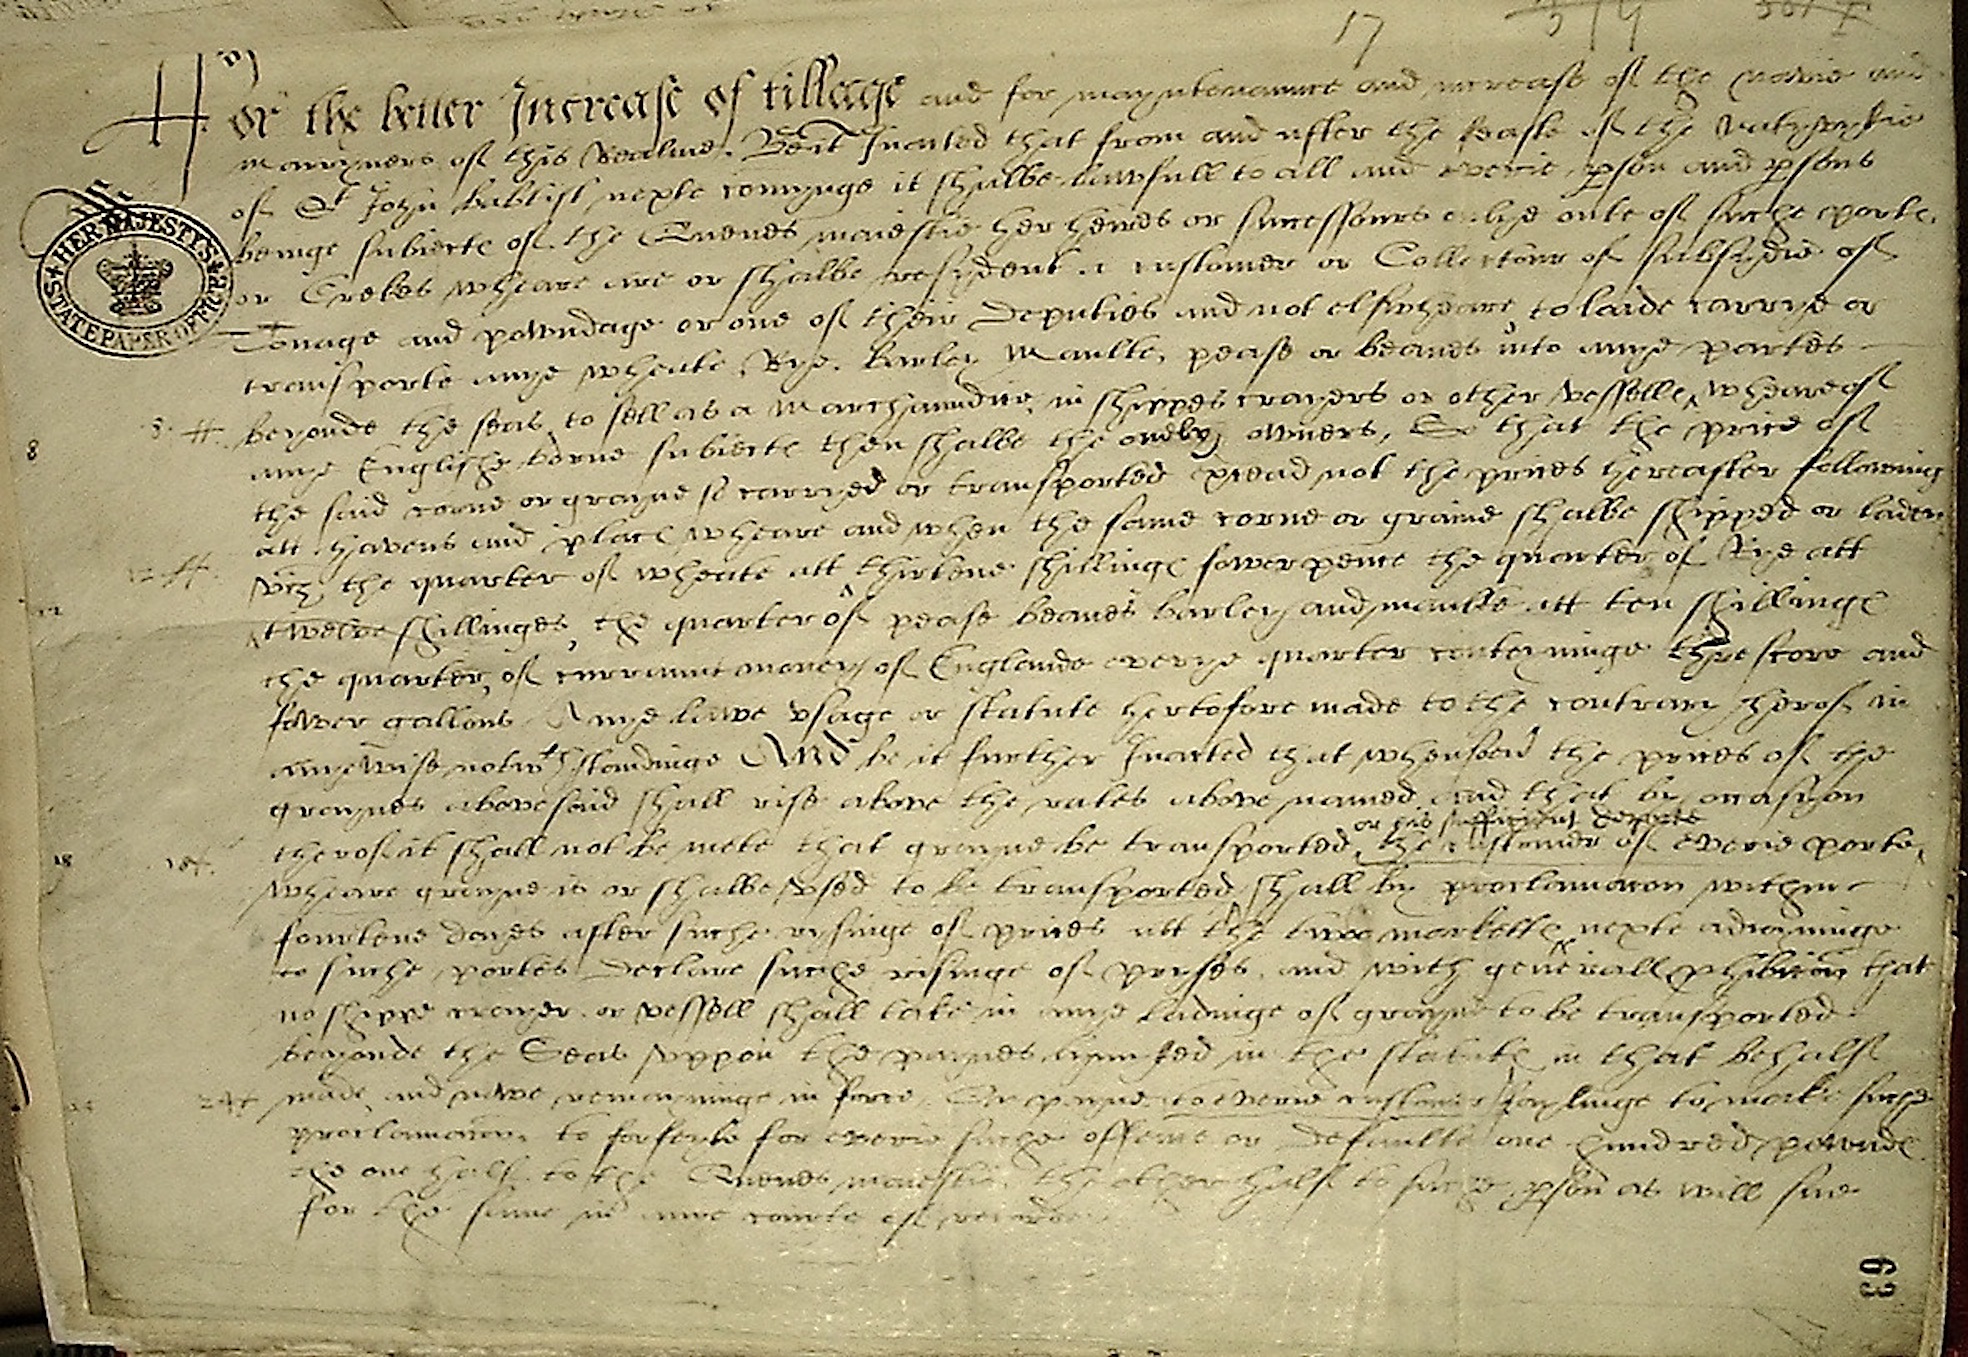 17
For the better Increase of tillage and for mayntenaunce and increase of the navie and
marryners of this Realme. Be it Inacted that from and after the feaste of the Natyvytie
of St John babtist nexte comynge it shalbe lawfull to all and everie pson and psons
beinge subiecte of the Quenes maiestie her heires or successours onlye oute of suche porte
or Crekes wheare are or shalbe resydent a customer or Collectour of subsydie of
Tonage and powndage or one of their Deputies and not elswheare, to laide carrye or
transporte anye wheate, Rye, barley, maulte, pease or beanes into anye partes
beyonde the seas to sell as a marchaundize, in shippes crayers or other vesselle, wheareof
anye Englishe borne subiecte then shalbe the onely owners, So that the price of
the said corne or grayne so carryed or transported excead not the prices hereafter following
att havens and place wheare and when the same corne or graine shalbe shipped or laden
viz the quarter of wheate att thirtene shillinge fower pence the quarter of Rye att
twelve shillinges, the quarter of pease beanes barley and maulte att ten shillinge
the quarter, of currannt money of Englande everye quarter conteyninge threscore and
fower gallons Anye lawe usage or statute hertofore made to the contrary therof in
anye wise notwthstandinge And be it further Inacted that whensoever the prices of the
graynes abovesaid shall rise above the rates above named and that by occasyon
therof it shall not be mete that grayne be transported, the customer of everie porte,
or his sufficient depute
wheare grayne is or shalbe used to be transported, shall by proclamacon within
fourtene dayes after suche rysinge of prices att the two markette nexte adioyninge
to suche portes Declare suche risinge of pryses, and with generall phibicon that
no shippe crayer or vessell shall take in anye ladinge of grayne to be transported
beyonde the Seas uppon the paynes lymyted in the statute in that behalf
made and nowe remayninge in force, On payne to everie customer faylinge to make suche
proclamacon, to forfeyte for everie suche offence or defaulte one hundred pownde
the one half to the Quenes maiestie, the other half to suche pson as will sue
for the same in anye courte of recorde
8
8
12
12
18
18
24
HER MAJESTY'S
STATE PAPER OFFICE
63